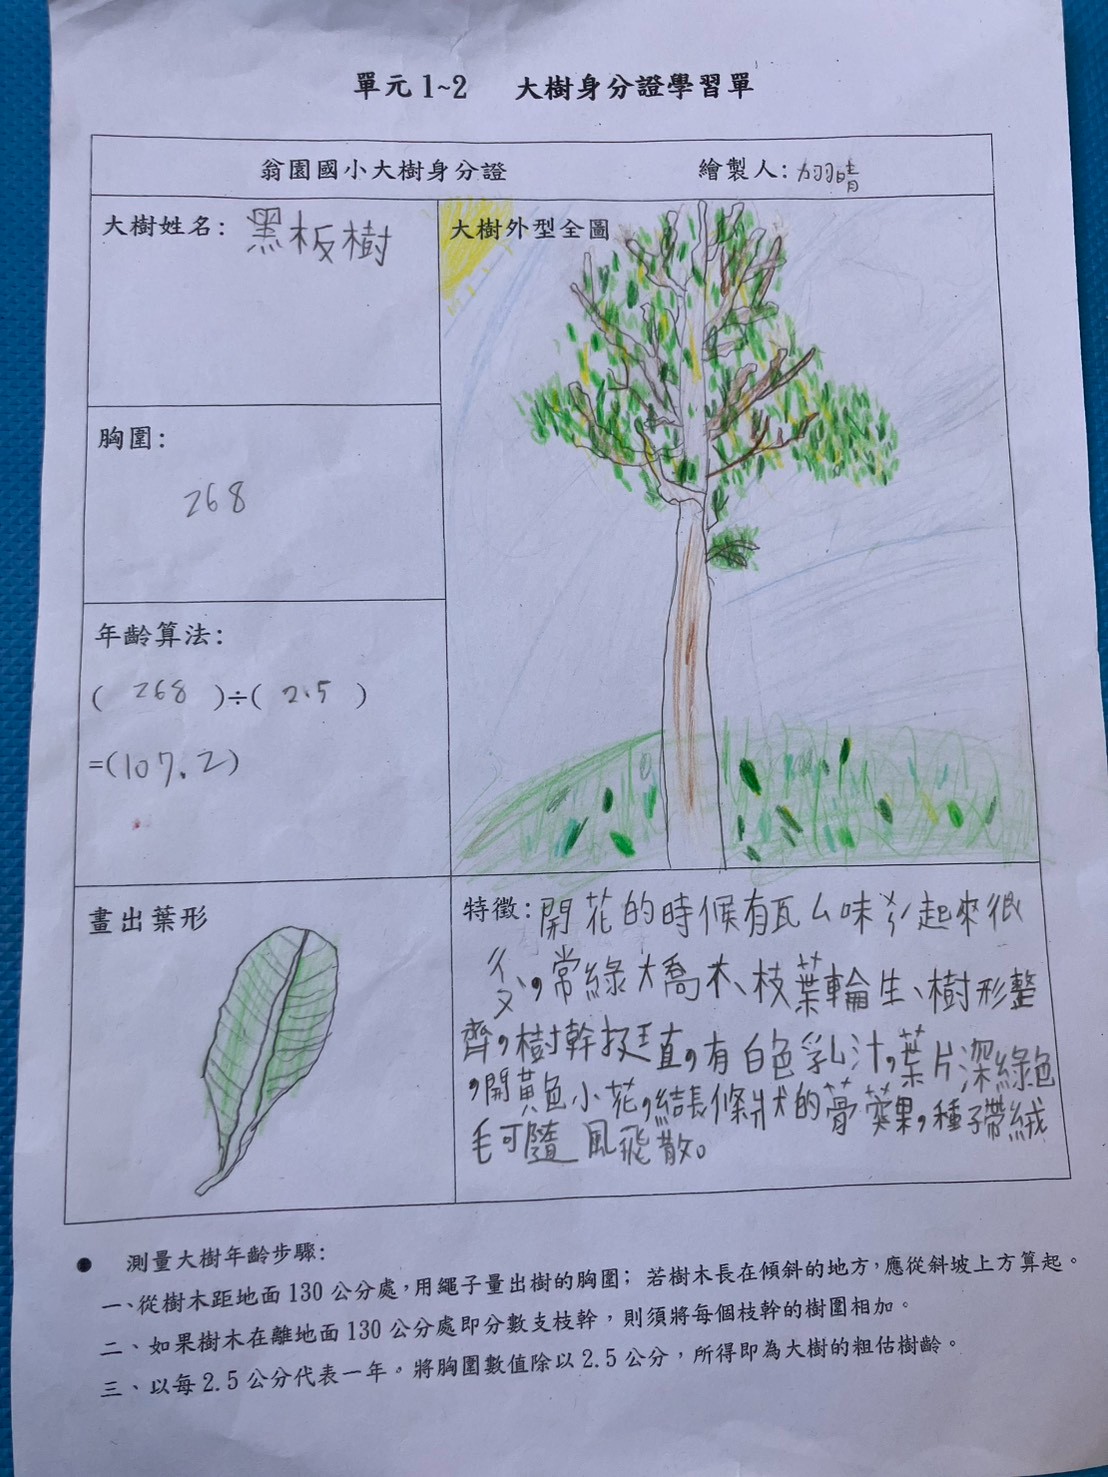 單元 1~2 大樹身分證學習單
翁園國小大樹身分證
繪製人:
大樹姓名: 黑板樹
大樹外型全圖
胸圍:
268
年齡算法:
( 268 )÷( 2.5 )
=(107.2)
畫出葉形
特徵: 開花的時候有瓦ㄙ味ㄌ起來很
多,常綠大喬木、枝葉輪生、樹形整
齊,樹幹挺直,有白色乳汁,葉片深綠色
,開黃色小花,結長條狀的蓇葖果,種子帶絨
毛可隨風飛散。
● 測量大樹年齡步驟:
一、從樹木距地面 130 公分處,用繩子量出樹的胸圍; 若樹木長在傾斜的地方,應從斜坡上方算起。
二、如果樹木在離地面 130 公分處即分數支枝幹,則須將每個枝幹的樹圍相加。
三、以每 2.5 公分代表一年。將胸圍數值除以 2.5 公分,所得即為大樹的粗估樹齡。